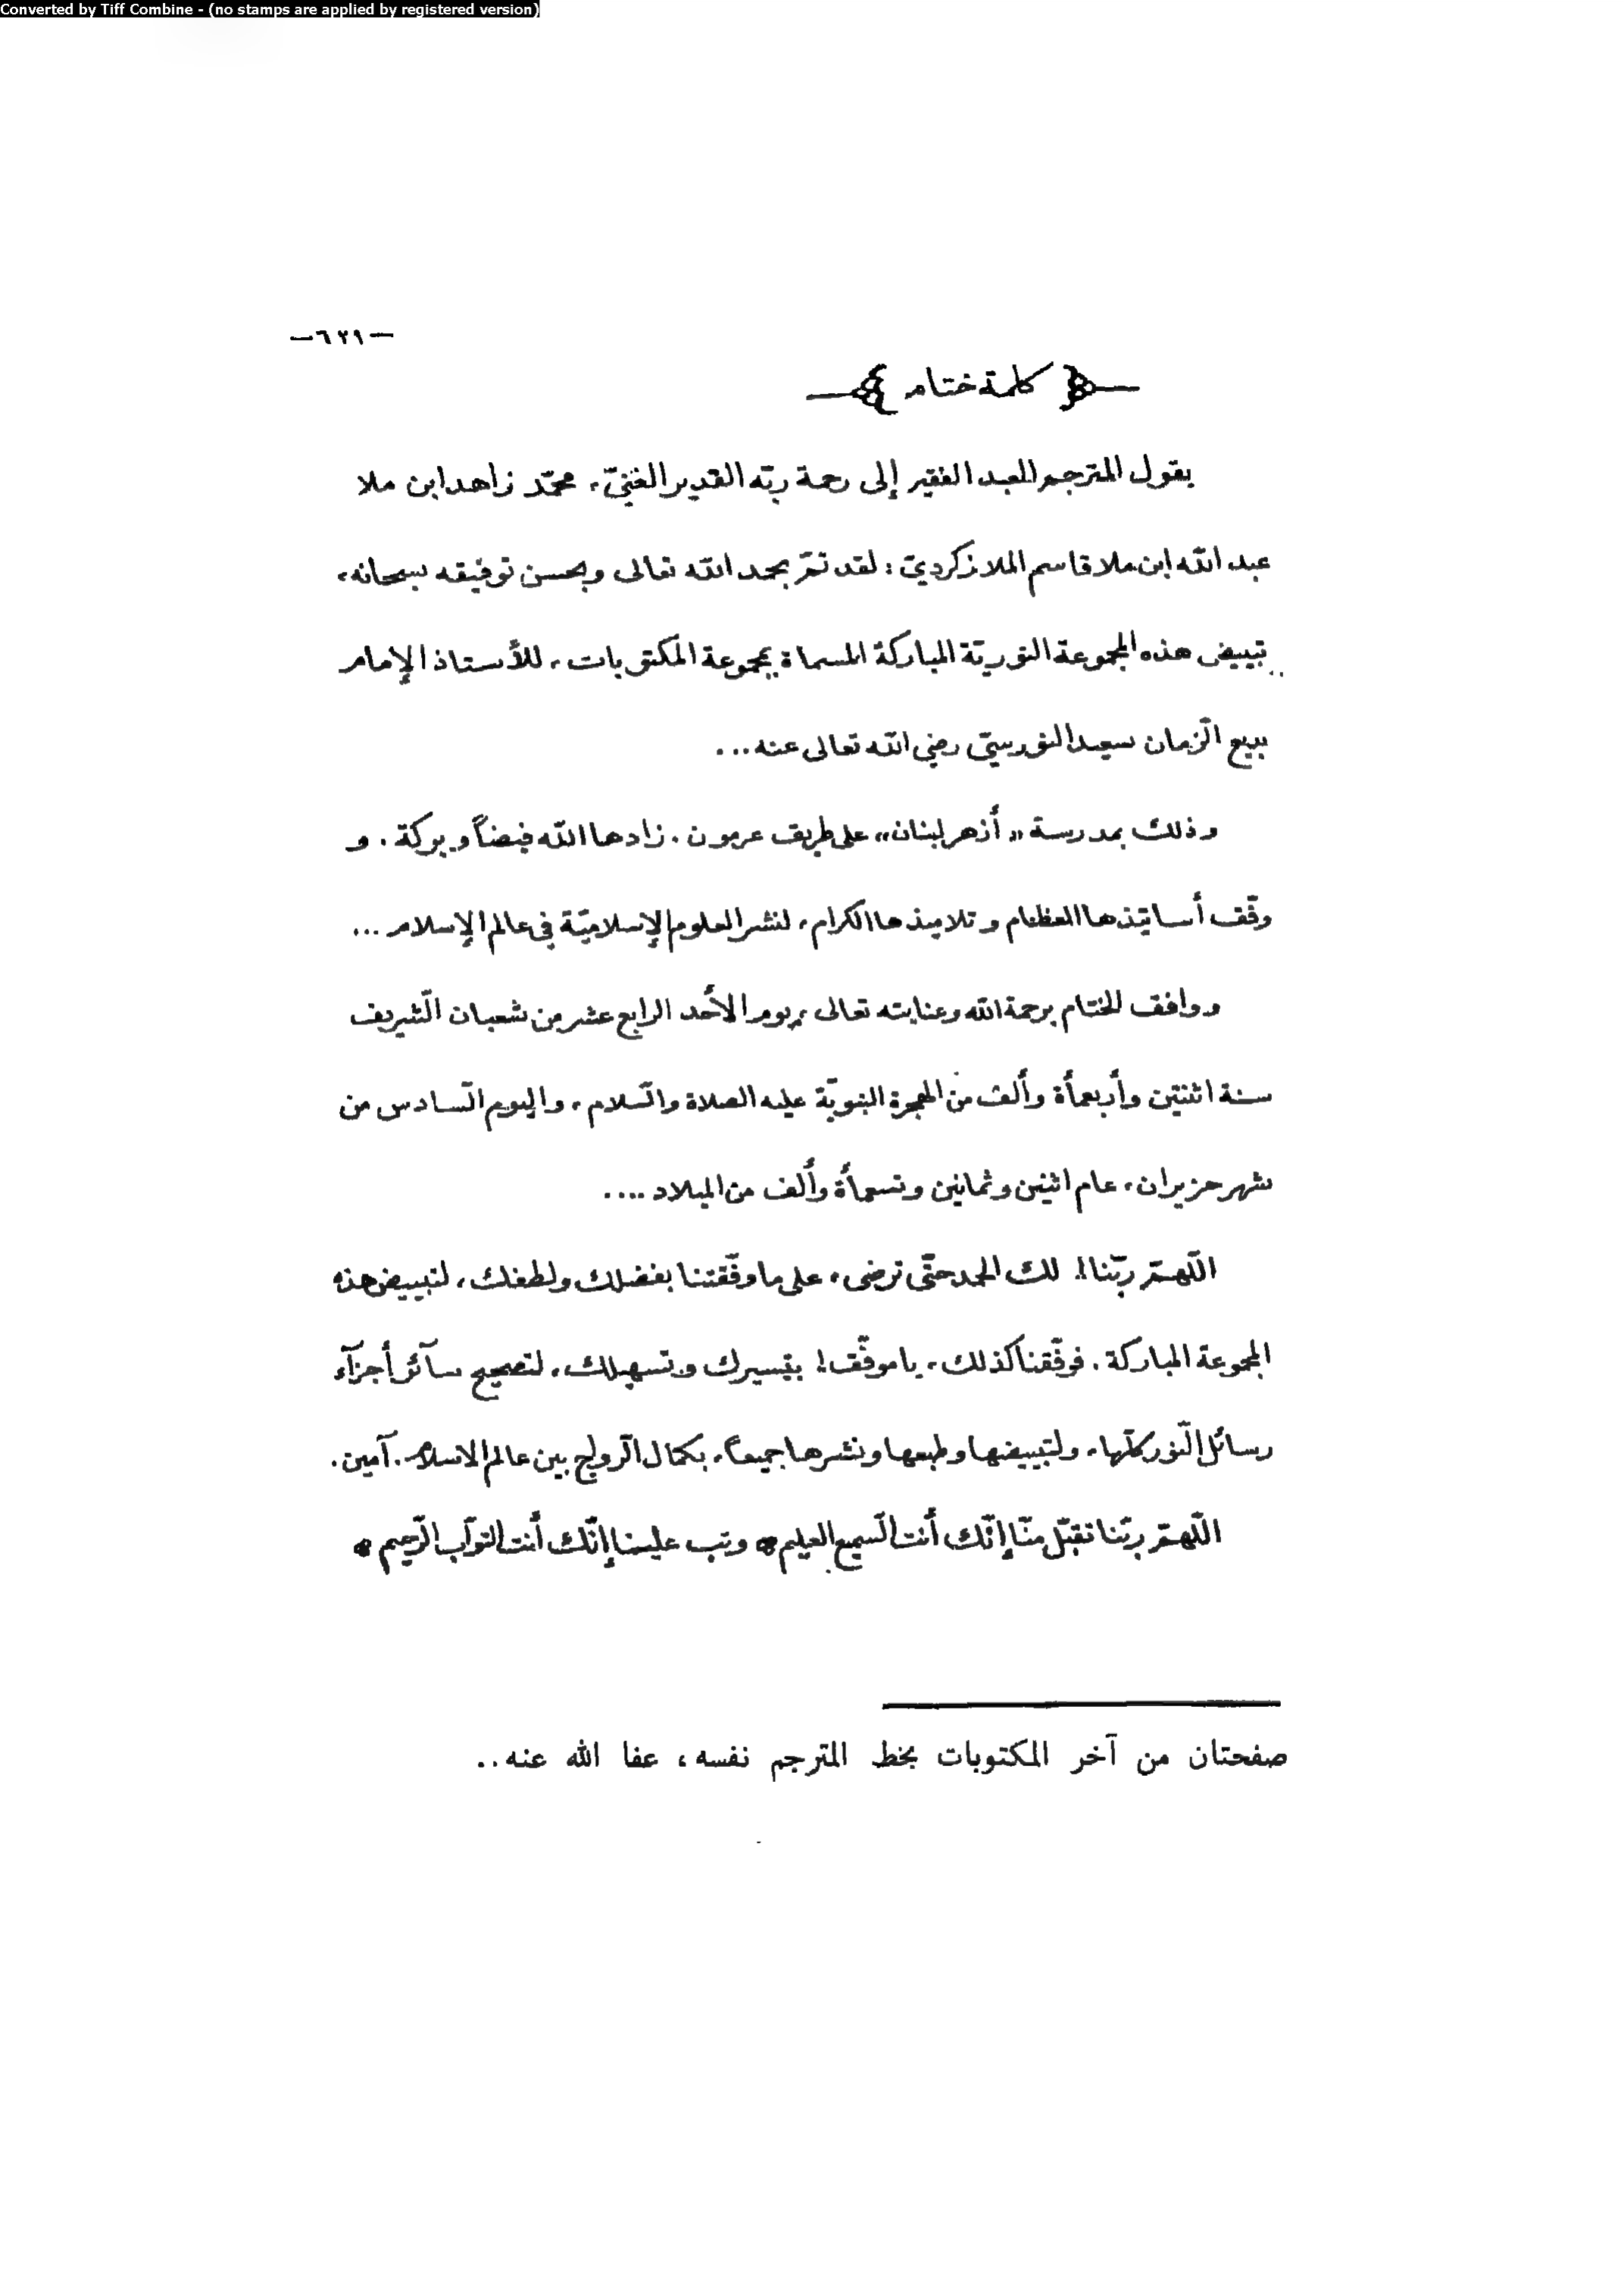 Converted by Tiff Combine - (no stamps are applied by registered version)
—٦٢٩—
﴿ كلمة ختام ﴾
يقول المترجم العبد الفقير إلى رحمة ربّه القدير الغنيّ، محمّد زاهد ابن ملا
عبد اللّه ابن ملا قاسم الملازكرديّ : لقد تمّ بحمد اللّه تعالى وبحسن توفيقه سبحانه،
تبييض هذه المجموعة النوريّة المباركة المسماة بمجموعة المكتوبات، للأستاذ الإمام
بديع الزّمان سعيد النورسيّ رضي اللّه تعالى عنه...
وذلك بمدرسة «أزهر لبنان» على طريق عرمون. زادها اللّه فيضاً وبركة. و
وفّق أساتيذها العظام وتلاميذها الكرام، لنشر العلوم الإسلاميّة في عالم الإسلام...
ووافق الختام برحمة اللّه وعنايته تعالى، يوم الأحد الرابع عشر من شعبان الشّريف
سنة اثنتين وأربعمأة وألف من الهجرة النبويّة عليه الصلاة والسّلام، واليوم السّادس من
شهر حزيران، عام اثنين وثمانين وتسعمأة وألف من الميلاد....
اللّهمّ ربّنا! لك الحمد حتّى ترضى، على ما وفّقتنا بفضلك ولطفك، لتبييض هذه
المجموعة المباركة. فوفّقنا كذلك، يا موفّق! بتيسيرك وتسهيلك، لتصحيح سآئر أجزآء
رسائل النّور كلّها، ولتبييضها وطبعها ونشرها جميعاً، بكمال الرّواج بين عالم الاسلام. آمين.
اللّهمّ ربّنا تقبّل منّا إنّك أنت السّميع العليم * وتب علينا إنّك أنت التوّاب الرّحيم *
صفحتان من آخر المكتوبات بخط المترجم نفسه، عفا الله عنه..